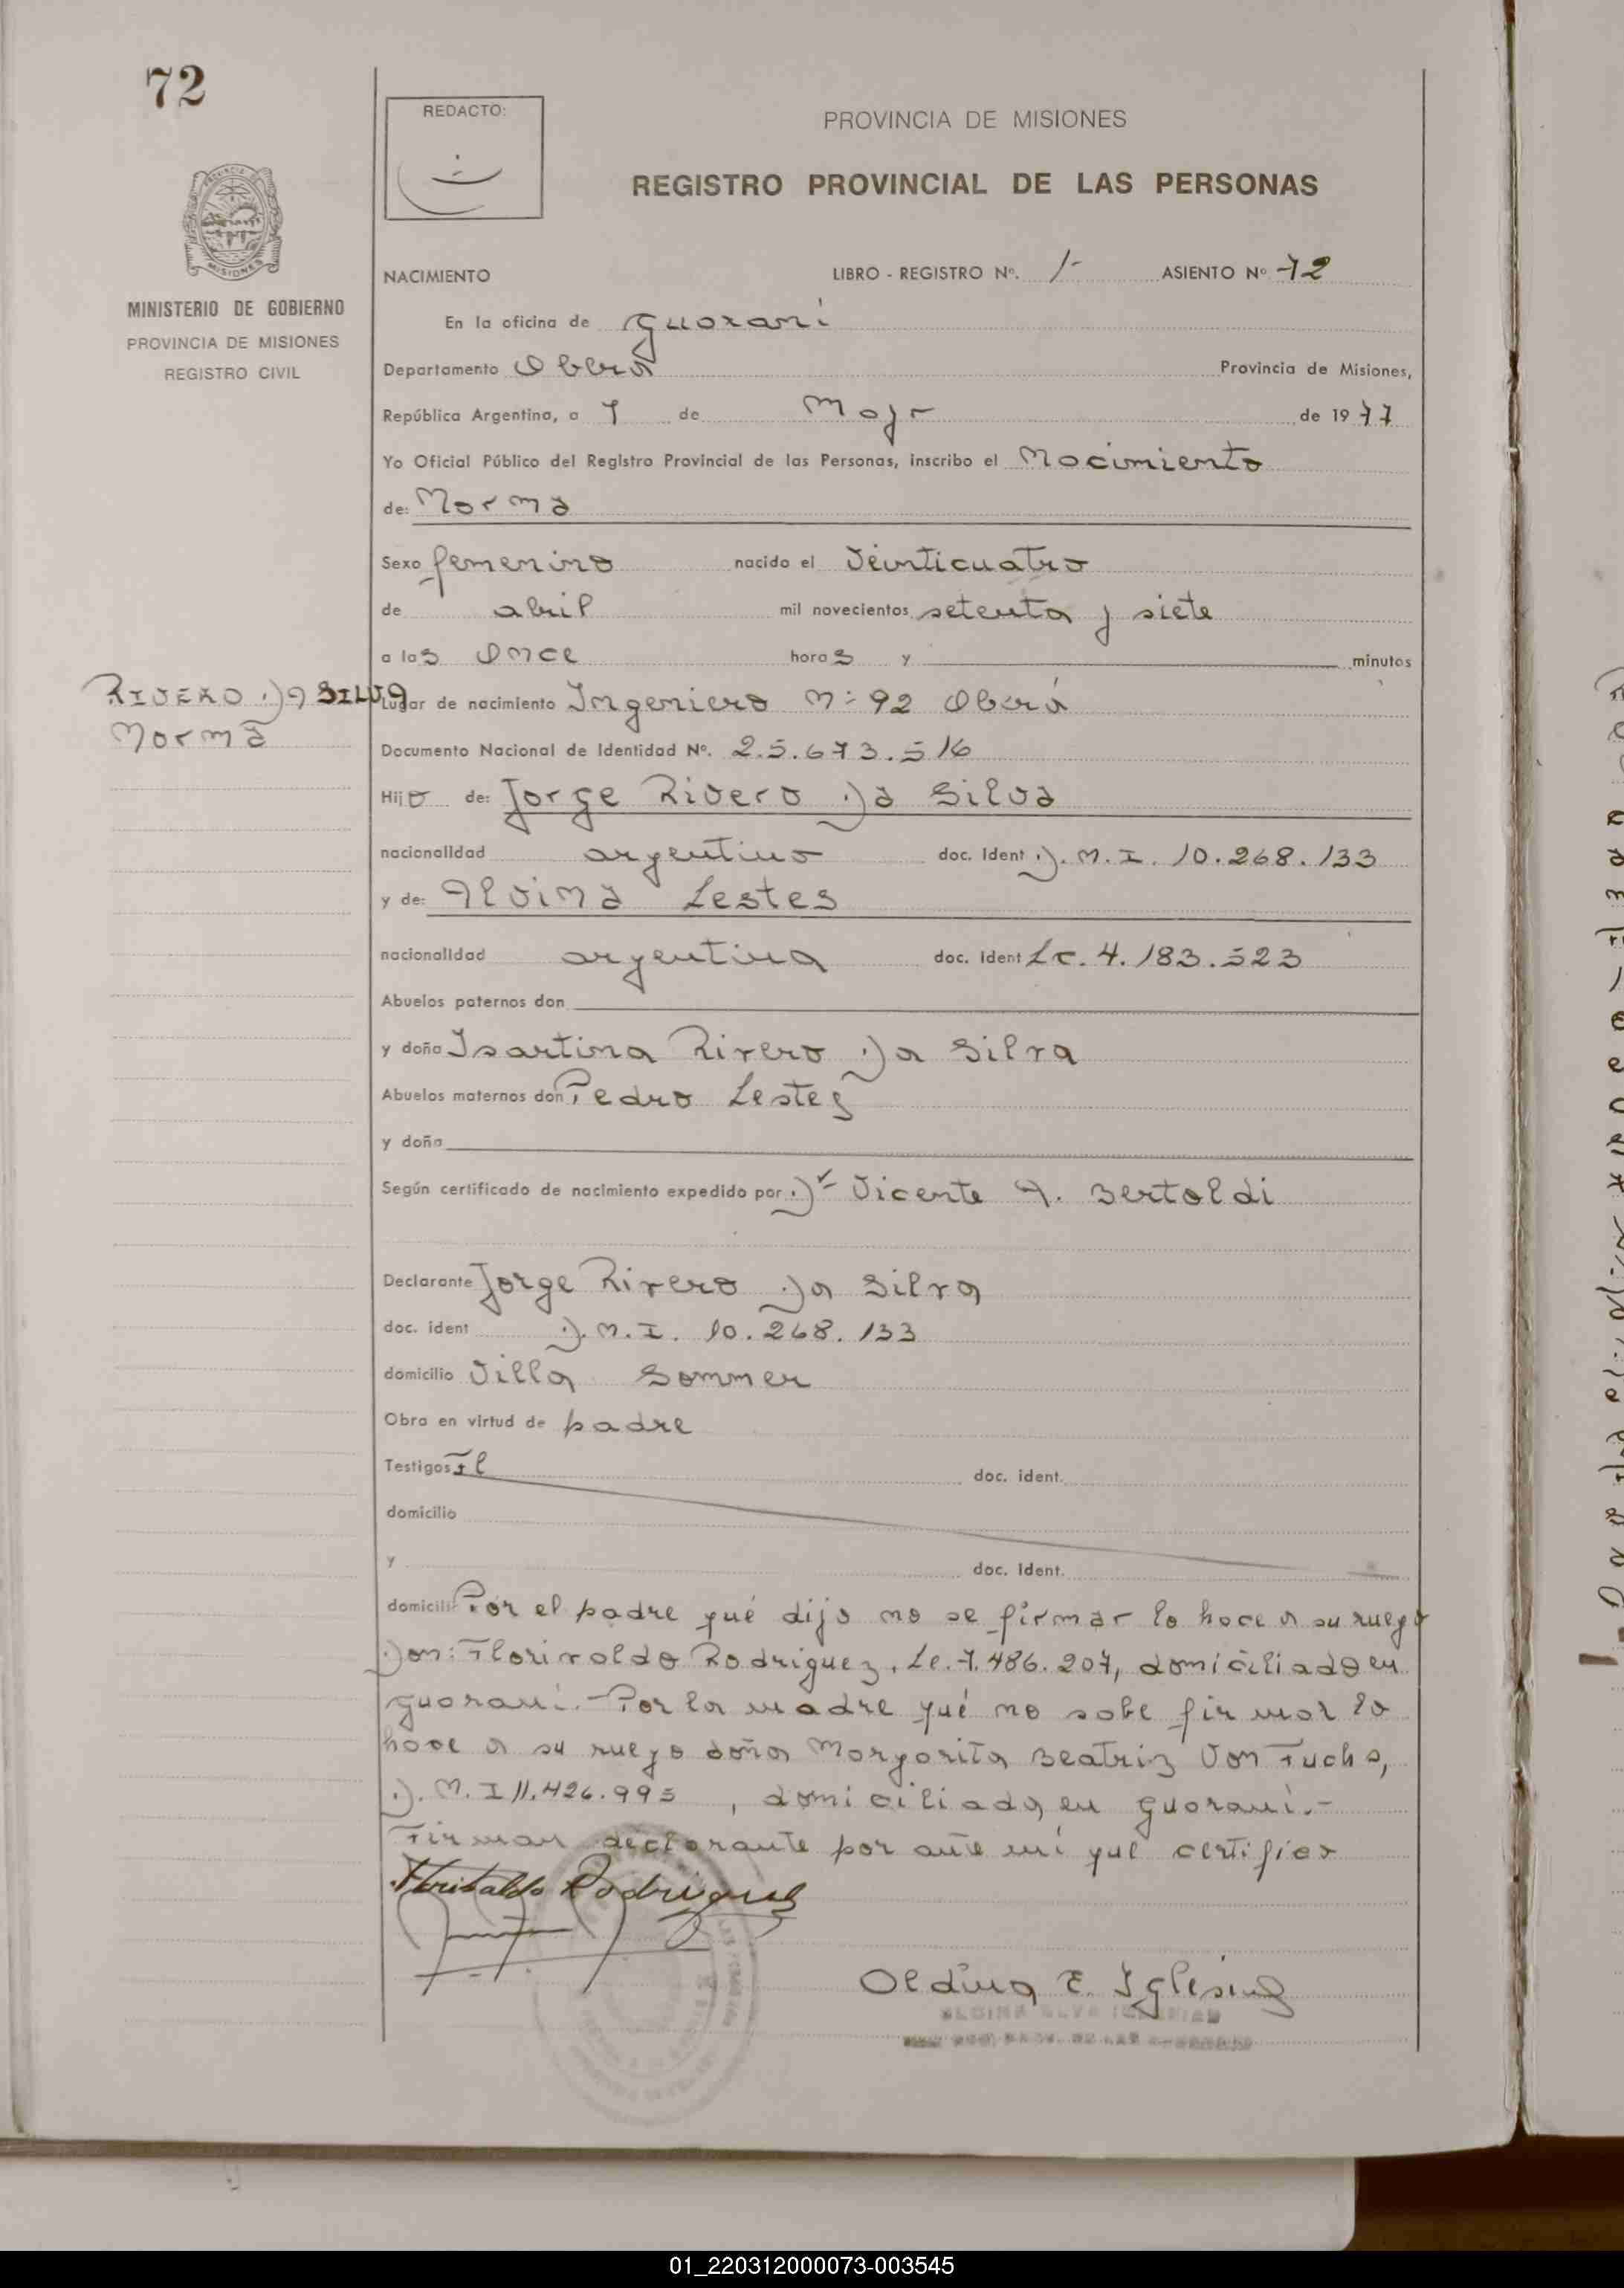 72
REDACTO:
PROVINCIA DE MISIONES
REGISTRO PROVINCIAL DE LAS PERSONAS
MISIONES
MINISTERIO DE GOBIERNO
PROVINCIA DE MISIONES
REGISTRO CIVIL
NACIMIENTO LIBRO - REGISTRO Nº. 1- ASIENTO Nº 72
En la oficina de Guarani
Departamento Oberá Provincia de Misiones,
República Argentina, a 7 de Mayo de 1977
Yo Oficial Público del Registro Provincial de las Personas, inscribo el Nacimiento
de: Norma
Sexo femenino nacido el Veinticuatro
de abril mil novecientos setenta y siete
a las Once horas y minutos
RIVERO DA SILVA
Norma
Lugar de nacimiento Ingeniero Nº 92 Oberá
Documento Nacional de Identidad Nº. 25.673.516
Hijo de: Jorge Rivero Da Silva
nacionalidad argentino doc. Ident D.N.I. 10.268.133
y de: Alvina Lestes
nacionalidad argentina doc. Ident Lc. 4.183.523
Abuelos paternos don
y doña Isartina Rivero Da Silva
Abuelos maternos don Pedro Lestes
y doña
Según certificado de nacimiento expedido por Dr Vicente A. Bertoldi
Declarante Jorge Rivero Da Silva
doc. ident D.N.I. 10.268.133
domicilio Villa Sommer
Obra en virtud de padre
Testigos doc. ident.
domicilio
y doc. Ident.
domicili Por el padre qué dijo no se firmar lo hace a su ruego
Don: Florivaldo Rodriguez, Le. 7.486.207, domiciliado en
guarani. Por la madre qué no sabe firmar lo
hace a su ruego doña Margarita Beatriz Von Fuchs,
D.N.I 11.426.995, domiciliada en guarani.-
Firman declarante por ante mi que certifico
Floribaldo Rodriguez
Oldina E. Iglesias
01_220312000073-003545